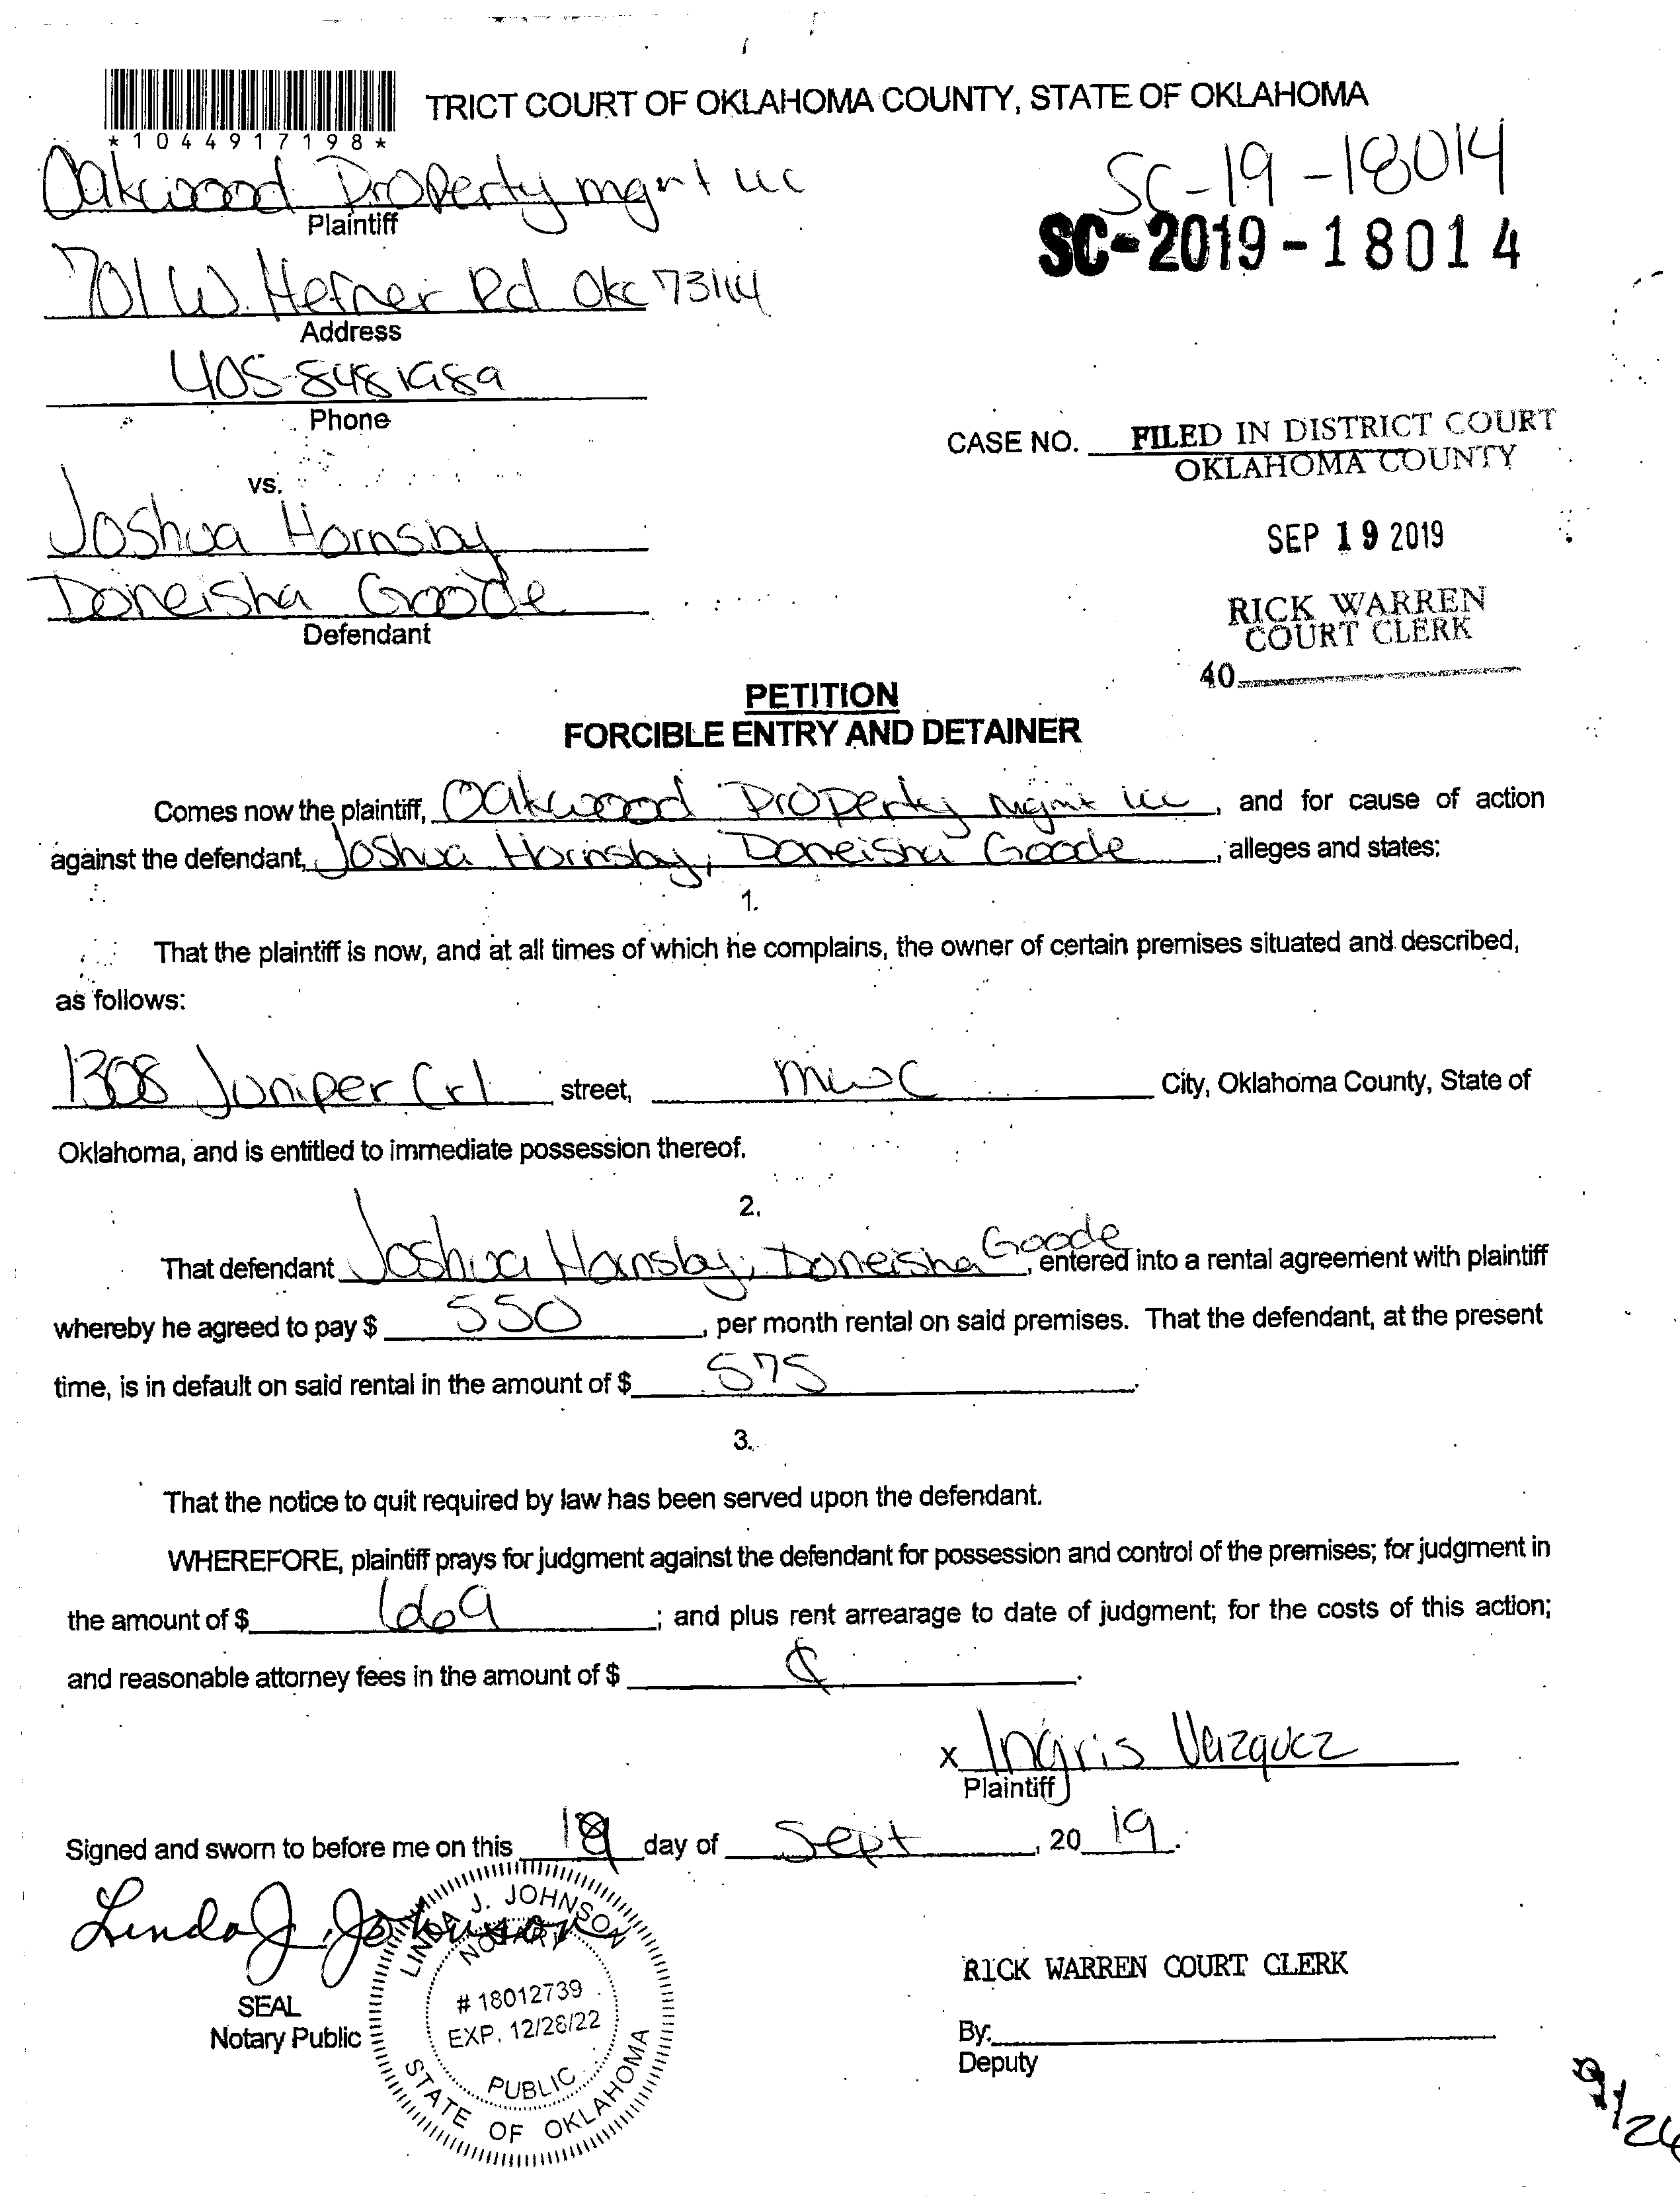 TRICT COURT OF OKLAHOMA COUNTY, STATE OF OKLAHOMA
*1044917198*
Oakwood Property mgmt LLC
Plaintiff
SC-19-18014
SC-2019-18014
701 W. Hefner Rd Okc 73114
Address
405-848 1989
Phone
CASE NO. FILED IN DISTRICT COURT
OKLAHOMA COUNTY
vs.
Joshua Hornsby
SEP 19 2019
Doneisha Goode
Defendant
RICK WARREN
COURT CLERK
40
PETITION
FORCIBLE ENTRY AND DETAINER
Comes now the plaintiff, Oakwood Property Mgmt LLC, and for cause of action
against the defendant, Joshua Hornsby, Doneisha Goode, alleges and states:
1.
That the plaintiff is now, and at all times of which he complains, the owner of certain premises situated and described,
as follows:
1308 Juniper Crl street, mwc City, Oklahoma County, State of
Oklahoma, and is entitled to immediate possession thereof.
2.
That defendant Joshua Hornsby, Doneisha Goode, entered into a rental agreement with plaintiff
whereby he agreed to pay $ 550, per month rental on said premises. That the defendant, at the present
time, is in default on said rental in the amount of $ 575.
3.
That the notice to quit required by law has been served upon the defendant.
WHEREFORE, plaintiff prays for judgment against the defendant for possession and control of the premises; for judgment in
the amount of $ 669; and plus rent arrearage to date of judgment; for the costs of this action;
and reasonable attorney fees in the amount of $
x Ingris Vazquez
Plaintiff
Signed and sworn to before me on this 19 day of Sept, 20 19.
Linda J. Johnson
LINDA J. JOHNSON
NOTARY
# 18012739
EXP. 12/28/22
PUBLIC
STATE OF OKLAHOMA
SEAL
Notary Public
RICK WARREN COURT CLERK
By:
Deputy
9/26